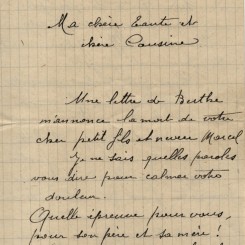 Ma chère Tante et
chère Cousine
Une lettre de Berthe
m'annonce la mort de votre
cher petit fils et neveu Marcel
Je ne sais quelles paroles
vous dire pour calmer votre
douleur.
Quelle épreuve pour vous,
pour son père et sa mère !